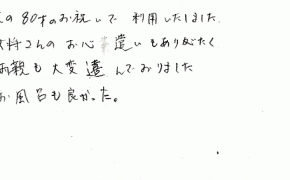 の80才のお祝いで 利用したしました
将さんの お心遣いもありがたく
両親も大変 んでおりました
お風呂も良かった。